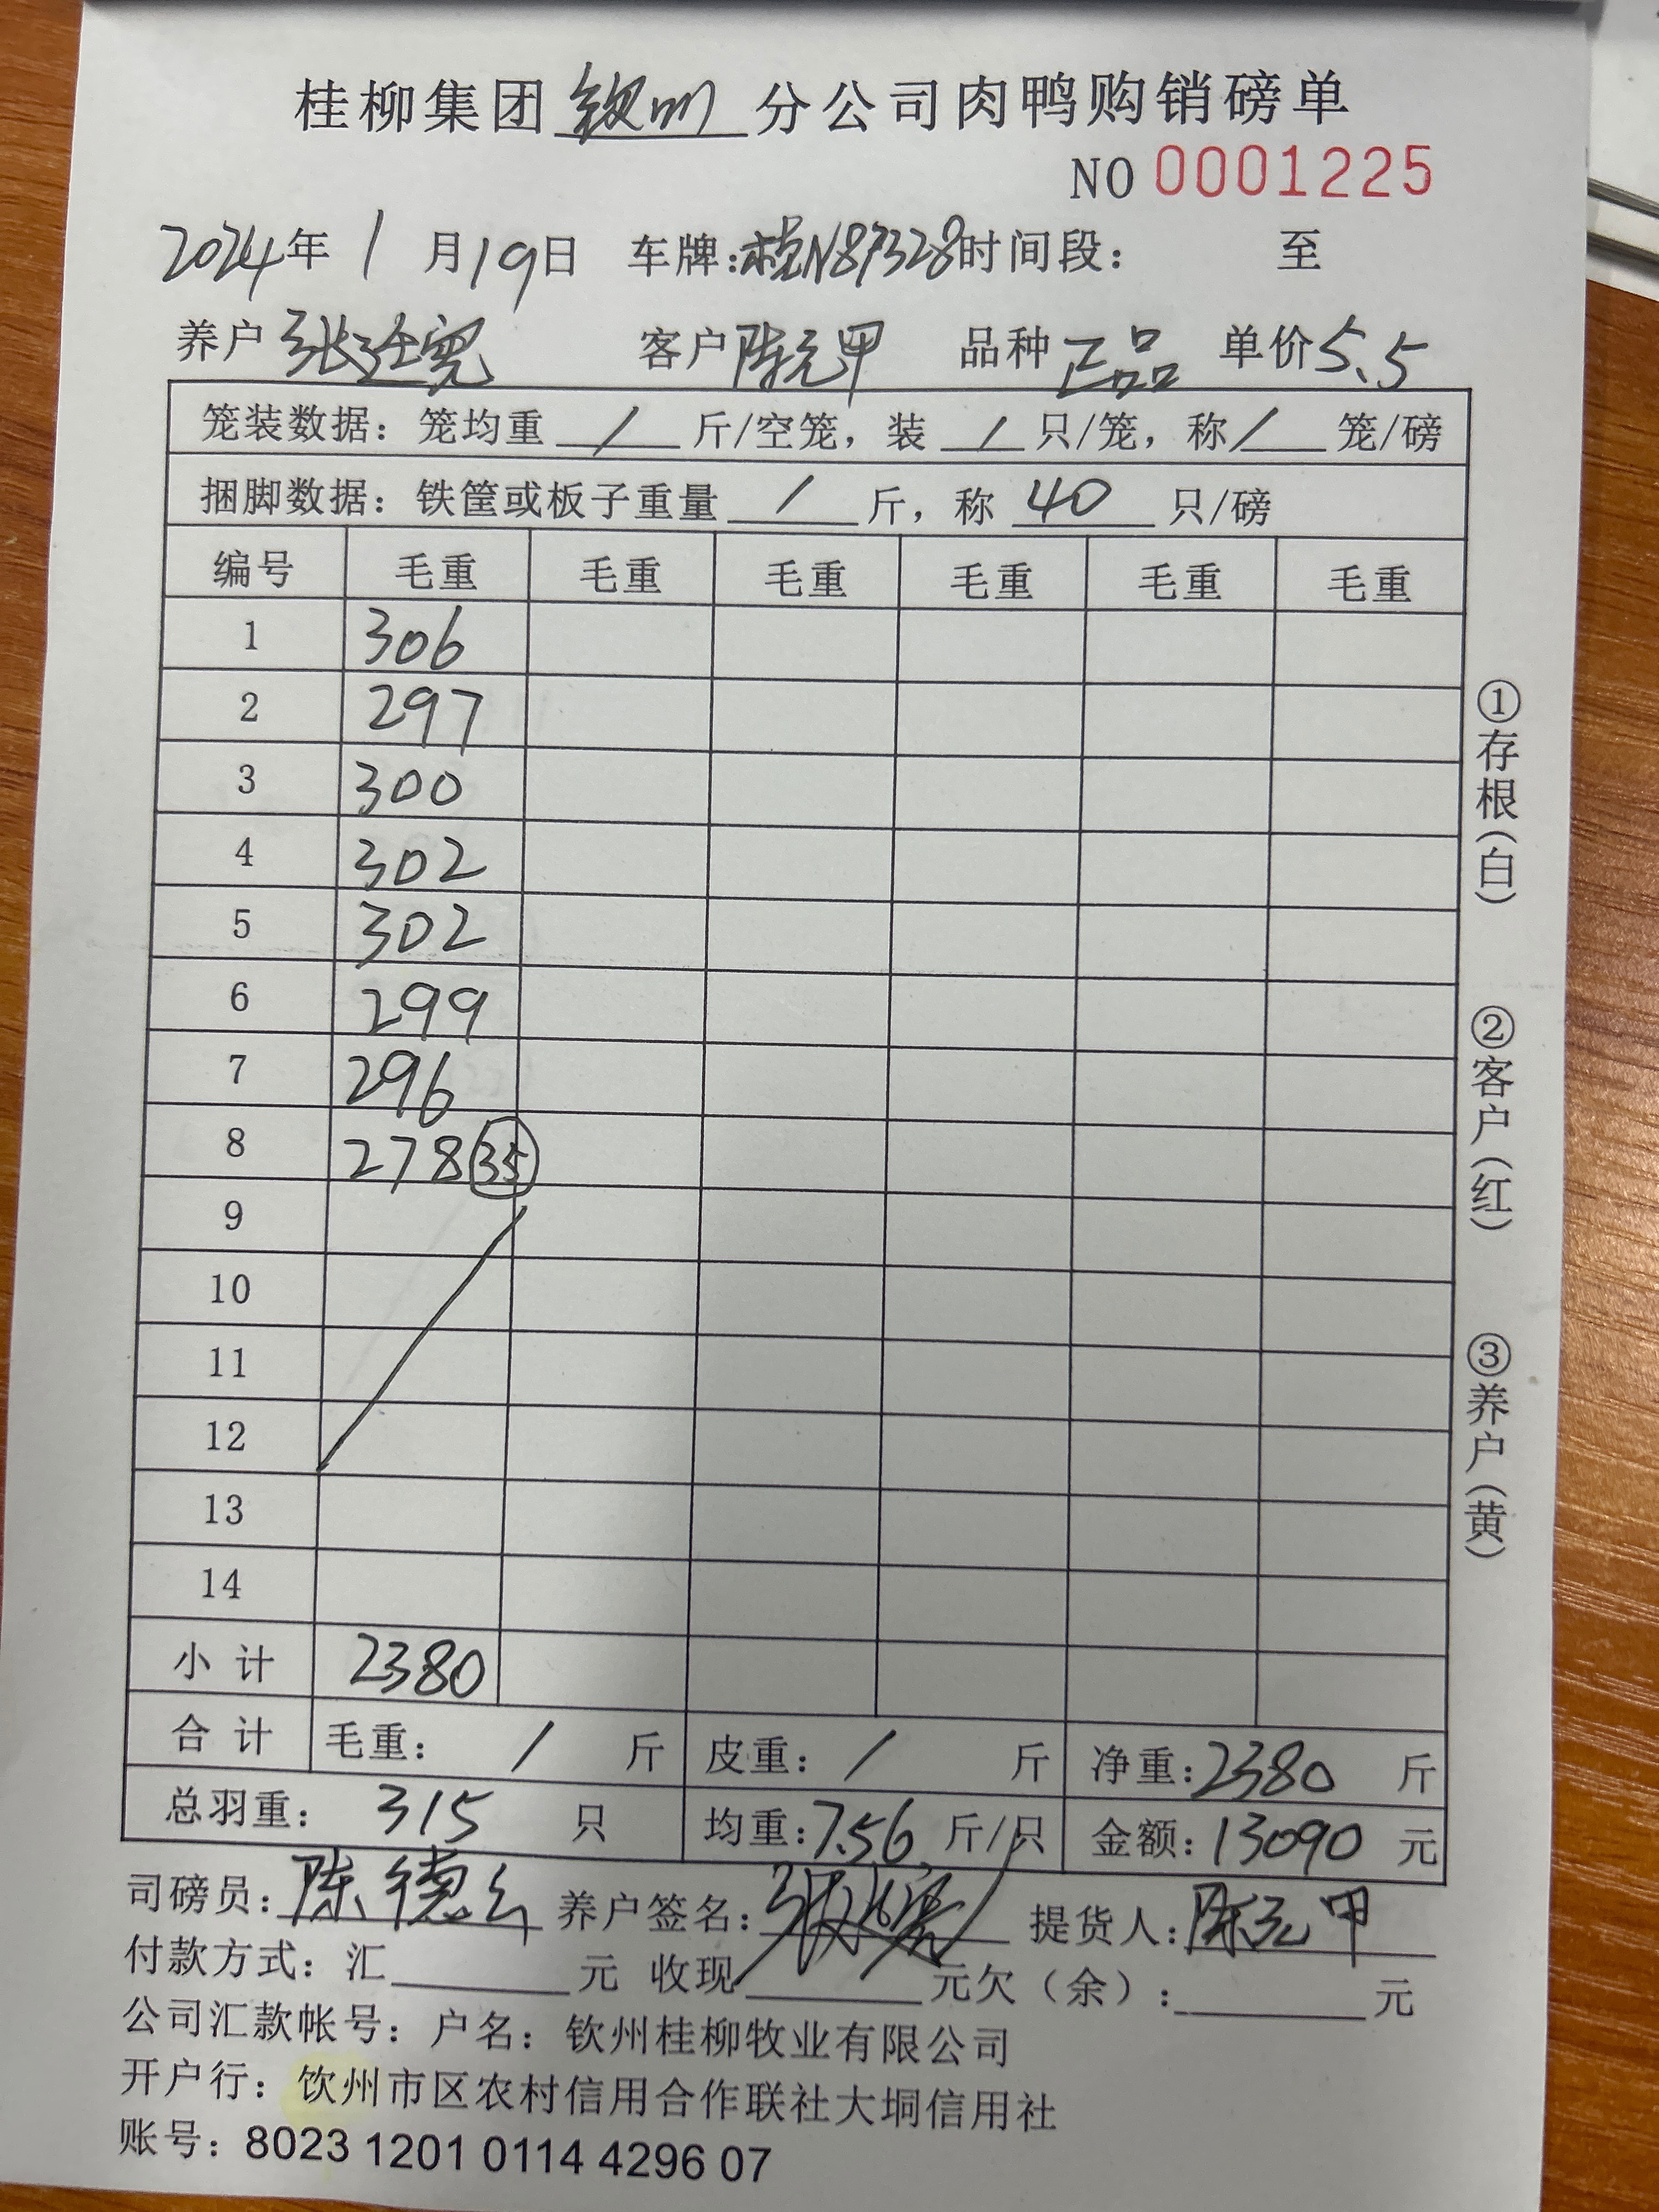 桂柳集团钦州分公司肉鸭购销磅单
NO 0001225
2024年 1 月19日 车牌:桂N87328时间段: 至
养户 张廷宽 客户 陈元甲 品种 正品 单价5.5
笼装数据: 笼均重 / 斤/空笼, 装 / 只/笼, 称 / 笼/磅
捆脚数据: 铁筐或板子重量 / 斤, 称 40 只/磅
编号 毛重 毛重 毛重 毛重 毛重 毛重
1 306
2 297
3 300
4 302
5 302
6 299
7 296
8 278 35
9
10
11
12
13
14
小计 2380
合计 毛重: / 斤 皮重: / 斤 净重:2380 斤
总羽重: 315 只 均重:7.56 斤/只 金额:13090 元
司磅员: 陈德 养户签名: 提货人:陈元甲
付款方式: 汇 元 收现 元欠(余): 元
公司汇款帐号: 户名: 钦州桂柳牧业有限公司
开户行: 钦州市区农村信用合作联社大垌信用社
账号: 8023 1201 0114 4296 07
①存根(白)
②客户(红)
③养户(黄)